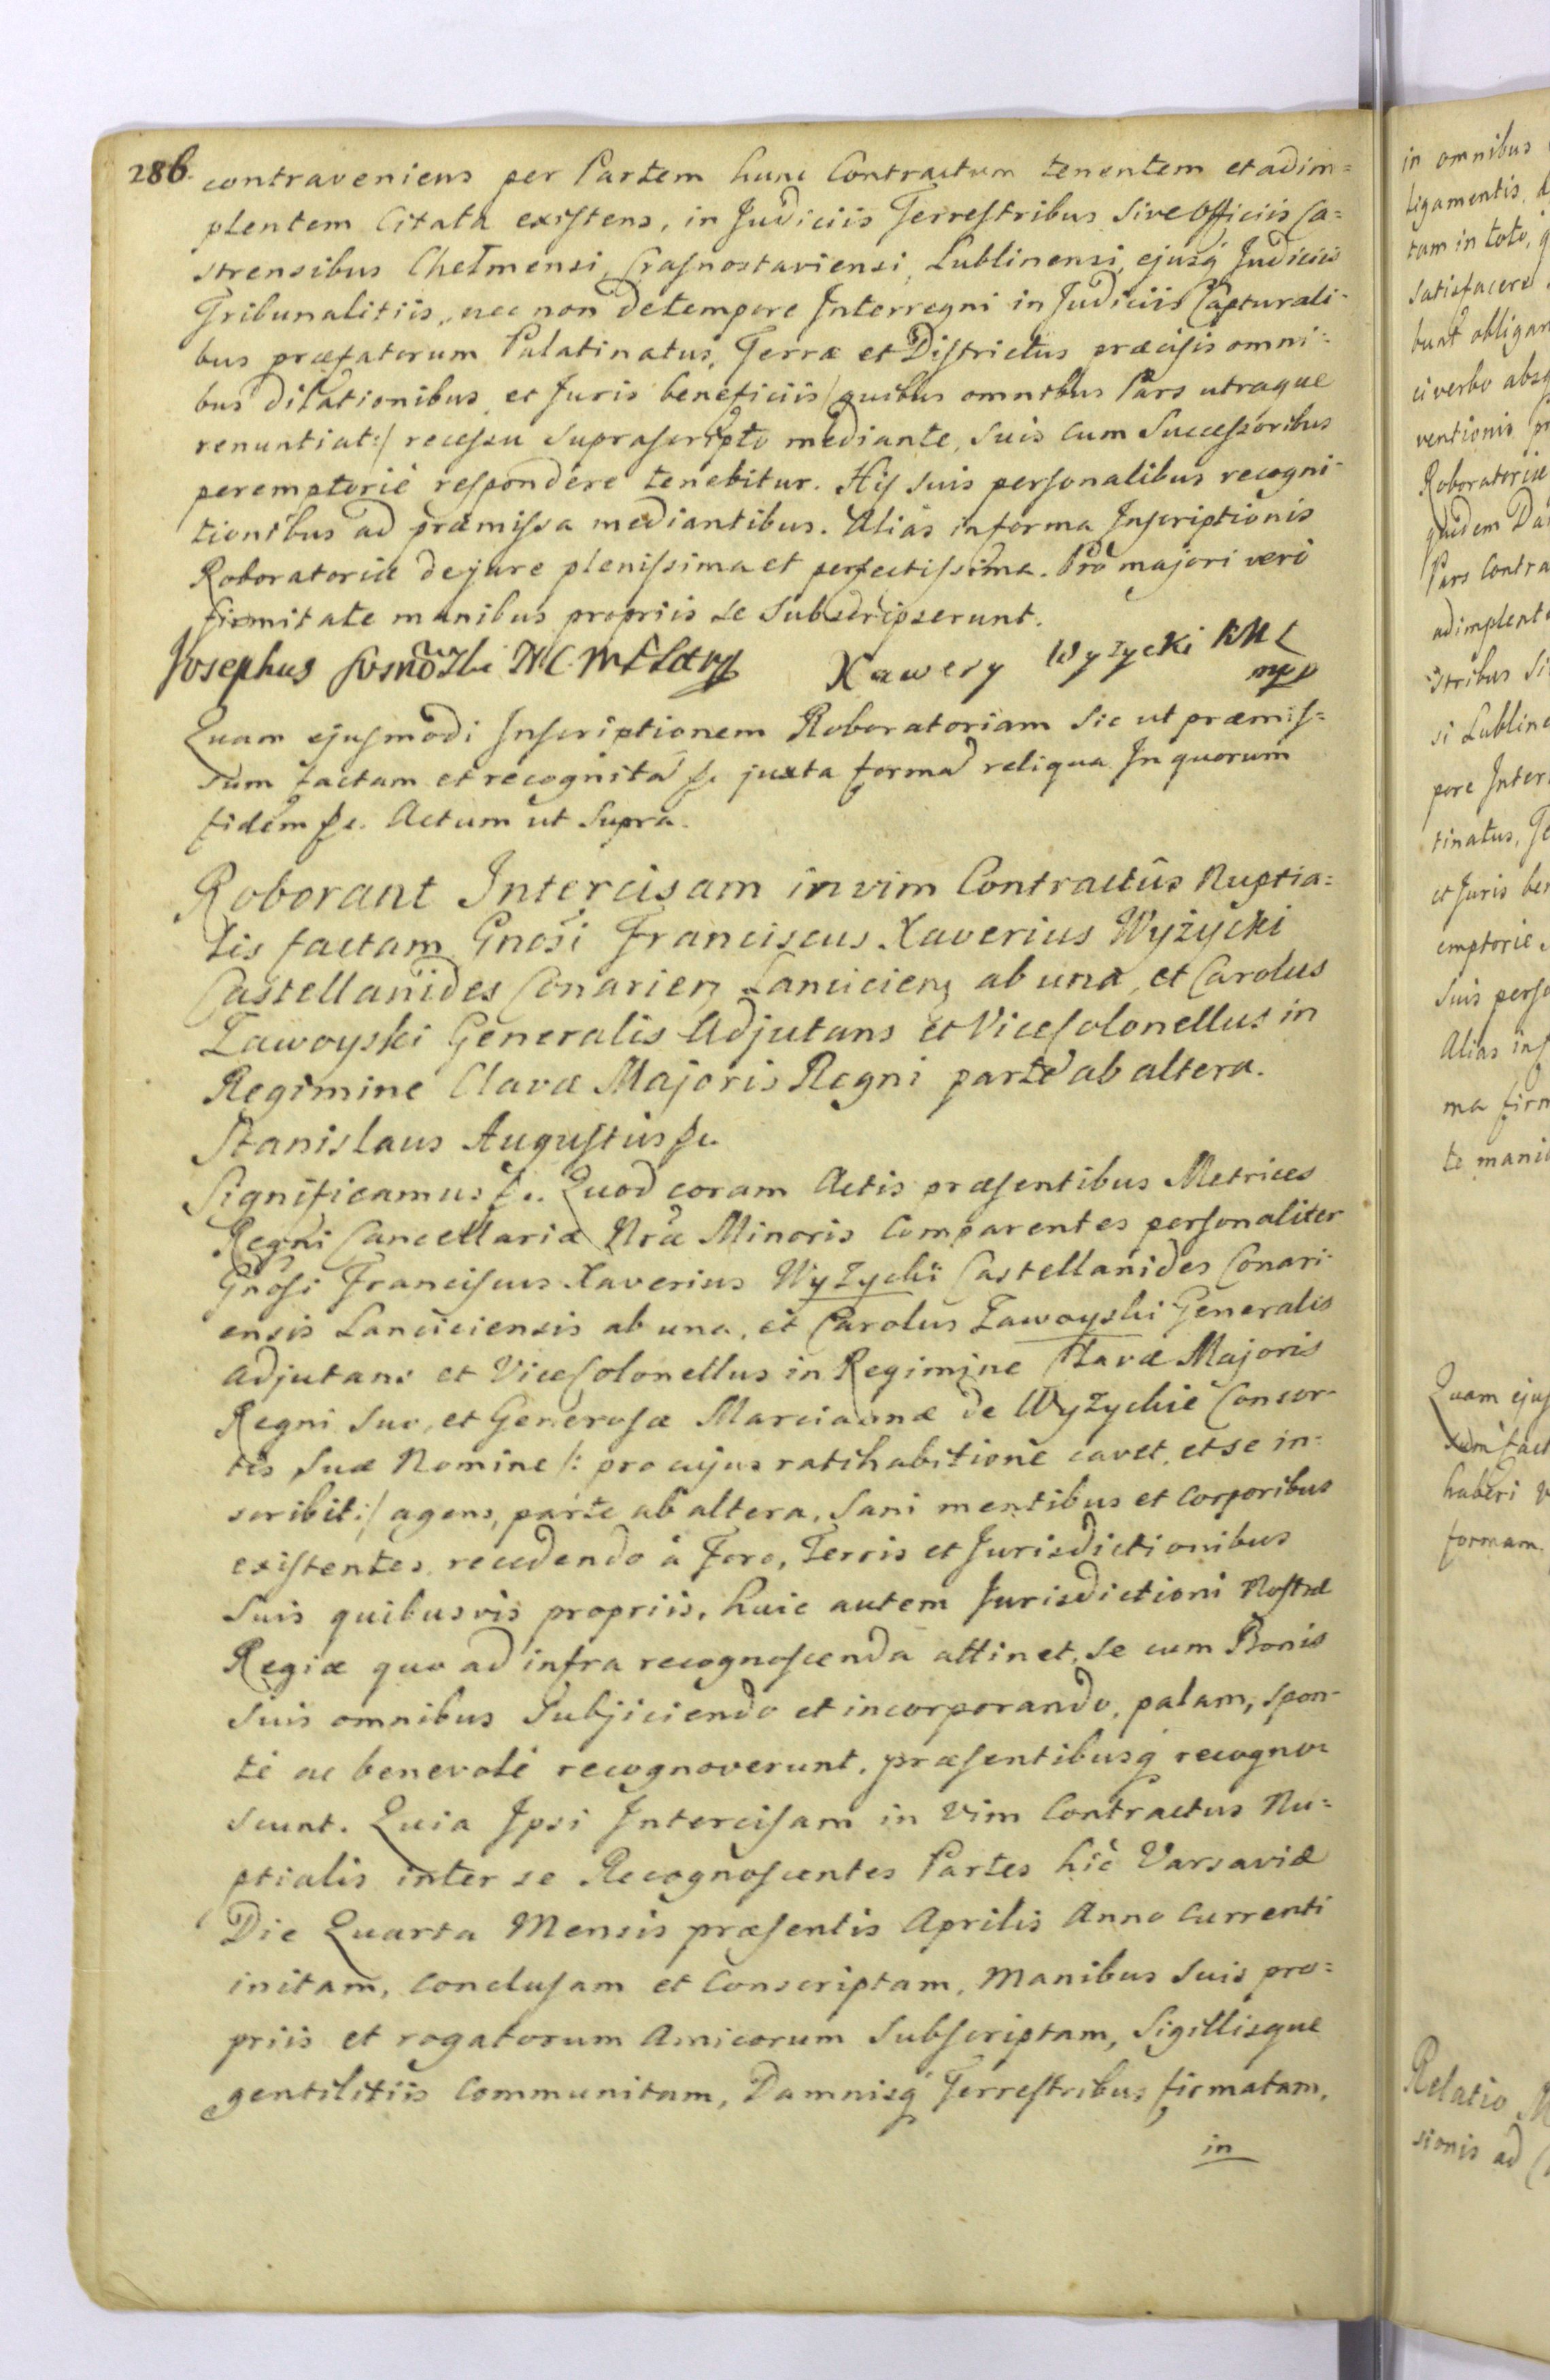 286. contraveniens per Partem hunc Contractum tenentem et adim=
plentem Citata existens, in Judiciis Terrestribus sive Officiis Ca=
strensibus Chelmensi, Crasnostaviensi, Lublinensi, ejusq́ Judiciis
Tribunalitiis, nec non de tempore Interregni in Judiciis Capturali=
bus præfatorum Palatinatus, Terræ et Districtus præcisis omni=
bus dilationibus, et Juris beneficiis /quibus omnibus Pars utraque
renuntiat:/ recessu suprascripto mediante, suis cum Successoribus
peremptorie respondere tenebitur. His suis personalibus recogni=
tionibus ad præmissa mediantibus. Alias in forma Inscriptionis
Roboratoriæ de jure plenissima et perfectissima. Pro majori vero
firmitate manibus propriis se subscripserunt.
Josephus Xawery Wyżycki
mpp
Quam ejusmodi Inscriptionem Roboratoriam sic ut præmis=
sum factam et recognitā &c. juxta formā reliqua. In quorum
fidem &c. Actum ut supra.
Roborant Intercisam in vim Contractûs Nuptia=
lis factam Gnosi Franciscus Xaverius Wyżycki
Castellanides Conarien Lancicien ab una, et Carolus
Zawoyski Generalis Adjutans et ViceColonellus in
Regimine Clavæ Majoris Regni parte ab altera.
Stanislaus Augustus &c.
Significamus &c. Quod coram Actis præsentibus Metrices
Regni Cancellariæ Nræ Minoris Comparentes personaliter
Gnosi Franciscus Xaverius Wyżycki Castellanides Conari=
ensis Lanciciensis ab una, et Carolus Zawoyski Generalis
Adjutans et ViceColonellus in Regimine Clavæ Majoris
Regni suo, et Generosæ Marciannæ de Wyżyckie Consor=
tis Suæ Nomine /: pro cujus ratihabitione cavet, et se in=
scribit:/ agens, parte ab altera, Sani mentibus et corporibus
existentes, recedendo à Foro, Terris et Jurisdictionibus
Suis quibusvis propriis, huic autem Jurisdictioni Nostræ
Regiæ quo ad infra recognoscenda attinet, se cum Bonis
Suis omnibus Subjiciendo et incorporando, palam, spon=
te ac benevole recognoverunt, præsentibusq́ recogno=
scunt. Quia Ipsi Intercisam in vim Contractus Nu=
ptialis inter se Recognoscentes Partes hic Varsaviæ
Die Quarta Mensis præsentis Aprilis Anno currenti
initam, conclusam et Conscriptam, Manibus Suis pro=
priis et rogatorum Amicorum Subscriptam, Sigillisque
gentilitiis Communitam, Damnisq́ Terrestribus firmatam,
in
in omnibus
ligamentis,
tam in toto,
satisfacere
bunt
ci verbo
ventionis
Roboratoriæ
quidem
Pars
stribus
si
pore
tinatus,
et Juris
emptorie
suis
Alias
ma
te
Quam
haberi
formam
Relatio
sionis ad